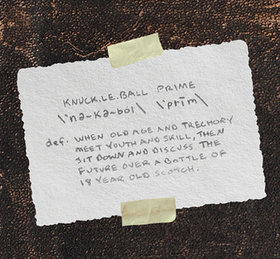 KNUCK.LE.BALL PRIME
\'nə-kə-ból\ \'prīm\
def. WHEN OLD AGE AND TRECHORY
MEET YOUTH AND SKILL, THEN
SIT DOWN AND DISCUSS THE
FUTURE OVER A BOTTLE OF
18 YEAR OLD SCOTCH.